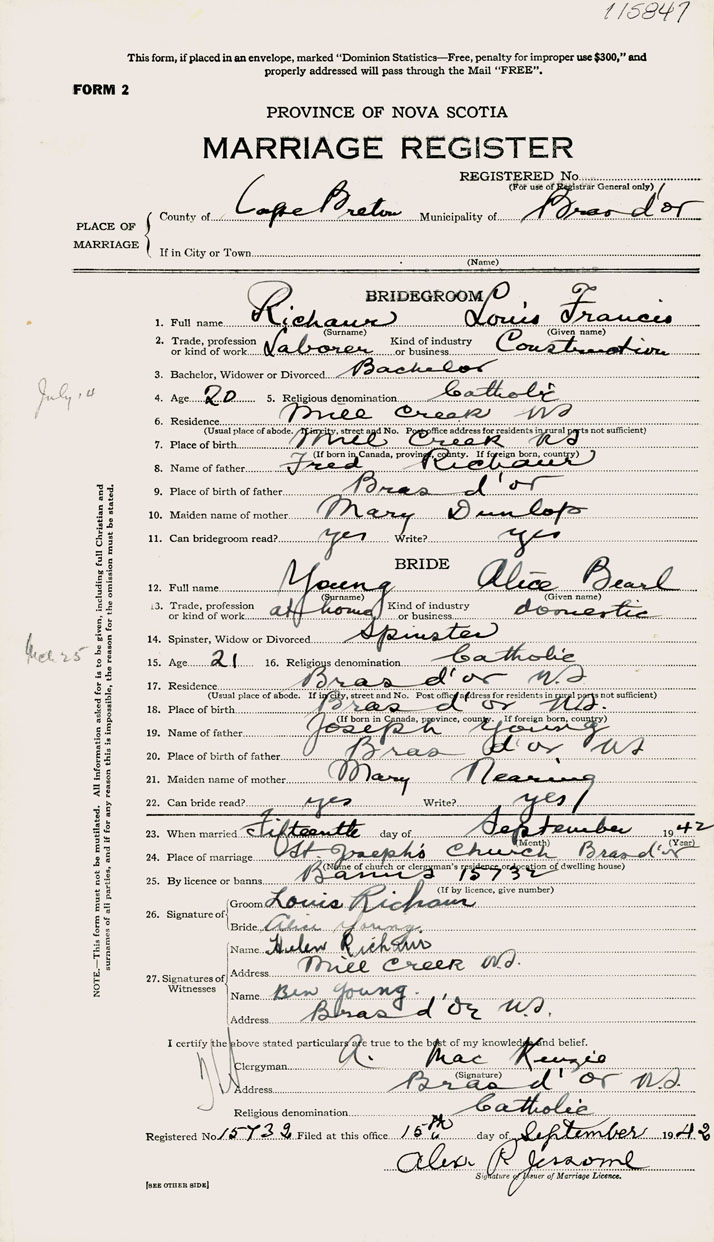 115847
This form, if placed in an envelope, marked "Dominion Statistics—Free, penalty for improper use $300," and
properly addressed will pass through the Mail "FREE".
FORM 2
PROVINCE OF NOVA SCOTIA
MARRIAGE REGISTER
REGISTERED No.
(For use of Registrar General only)
PLACE OF MARRIAGE
County of Cape Breton Municipality of Bras d'or
If in City or Town
(Name)
BRIDEGROOM
1. Full name Richaur Louis Francis
(Surname) (Given name)
2. Trade, profession or kind of work Laborer Kind of industry or business Construction
3. Bachelor, Widower or Divorced Bachelor
July 14
4. Age 20 5. Religious denomination Catholic
6. Residence Mill Creek NS
(Usual place of abode. If in city, street and No. Post office address for residents in rural parts not sufficient)
7. Place of birth Mill Creek NS
(If born in Canada, province, county. If foreign born, country)
8. Name of father Fred Richaur
9. Place of birth of father Bras d'or
10. Maiden name of mother Mary Dunlop
11. Can bridegroom read? yes Write? yes
BRIDE
12. Full name Young Alice Bearl
(Surname) (Given name)
13. Trade, profession or kind of work at home Kind of industry or business domestic
14. Spinster, Widow or Divorced Spinster
Mch 25
15. Age 21 16. Religious denomination Catholic
17. Residence Bras d'or N.S
(Usual place of abode. If in city, street and No. Post office address for residents in rural parts not sufficient)
18. Place of birth Bras d'or N.S.
(If born in Canada, province, county. If foreign born, country)
19. Name of father Joseph Young
20. Place of birth of father Bras d'or NS
21. Maiden name of mother Mary Nearing
22. Can bride read? yes Write? yes
23. When married Fifteenth day of September 1942
(Month) (Year)
24. Place of marriage St Joseph's Church Bras d'or
(Name of church or clergyman's residence or location of dwelling house)
25. By licence or banns Banns 15732
(If by licence, give number)
26. Signature of
Groom Louis Richaur
Bride Alice Young.
27. Signatures of Witnesses
Name Helen Richaur
Address Mill Creek N.S.
Name Ben Young.
Address Bras d'Or N.S.
I certify the above stated particulars are true to the best of my knowledge and belief.
Clergyman A. MacKenzie
(Signature)
Address Bras d'or N.S.
Religious denomination Catholic
Registered No. 15732 Filed at this office 15th day of September 1942
Alex R Jessome
Signature of Issuer of Marriage Licence.
[SEE OTHER SIDE]
NOTE.—This form must not be mutilated. All information asked for is to be given, including full Christian and
surnames of all parties, and if for any reason this is impossible, the reason for the omission must be stated.